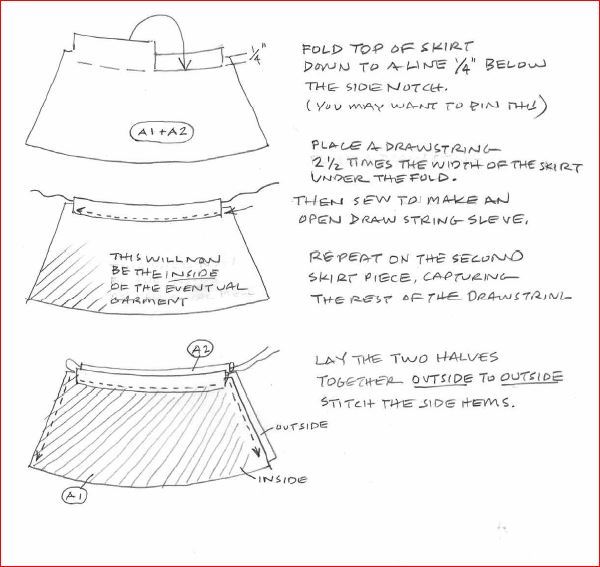 FOLD TOP OF SKIRT
DOWN TO A LINE 1/4" BELOW
THE SIDE NOTCH.
(YOU MAY WANT TO PIN THIS)
1/4"
A1+A2
PLACE A DRAWSTRING
2 1/2 TIMES THE WIDTH OF THE SKIRT
UNDER THE FOLD.
THEN SEW TO MAKE AN
OPEN DRAW STRING SLEVE.
THIS WILL NOW
BE THE INSIDE
OF THE EVENTUAL
GARMENT
REPEAT ON THE SECOND
SKIRT PIECE, CAPTURING
THE REST OF THE DRAWSTRING
A2
LAY THE TWO HALVES
TOGETHER OUTSIDE TO OUTSIDE
STITCH THE SIDE HEMS.
OUTSIDE
INSIDE
A1